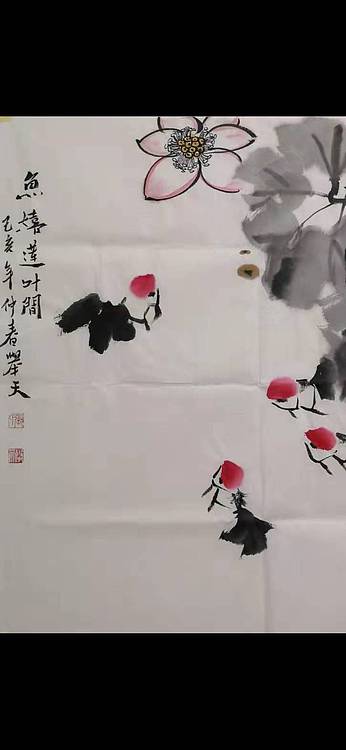 魚嬉蓮叶間
己亥年仲春犖天